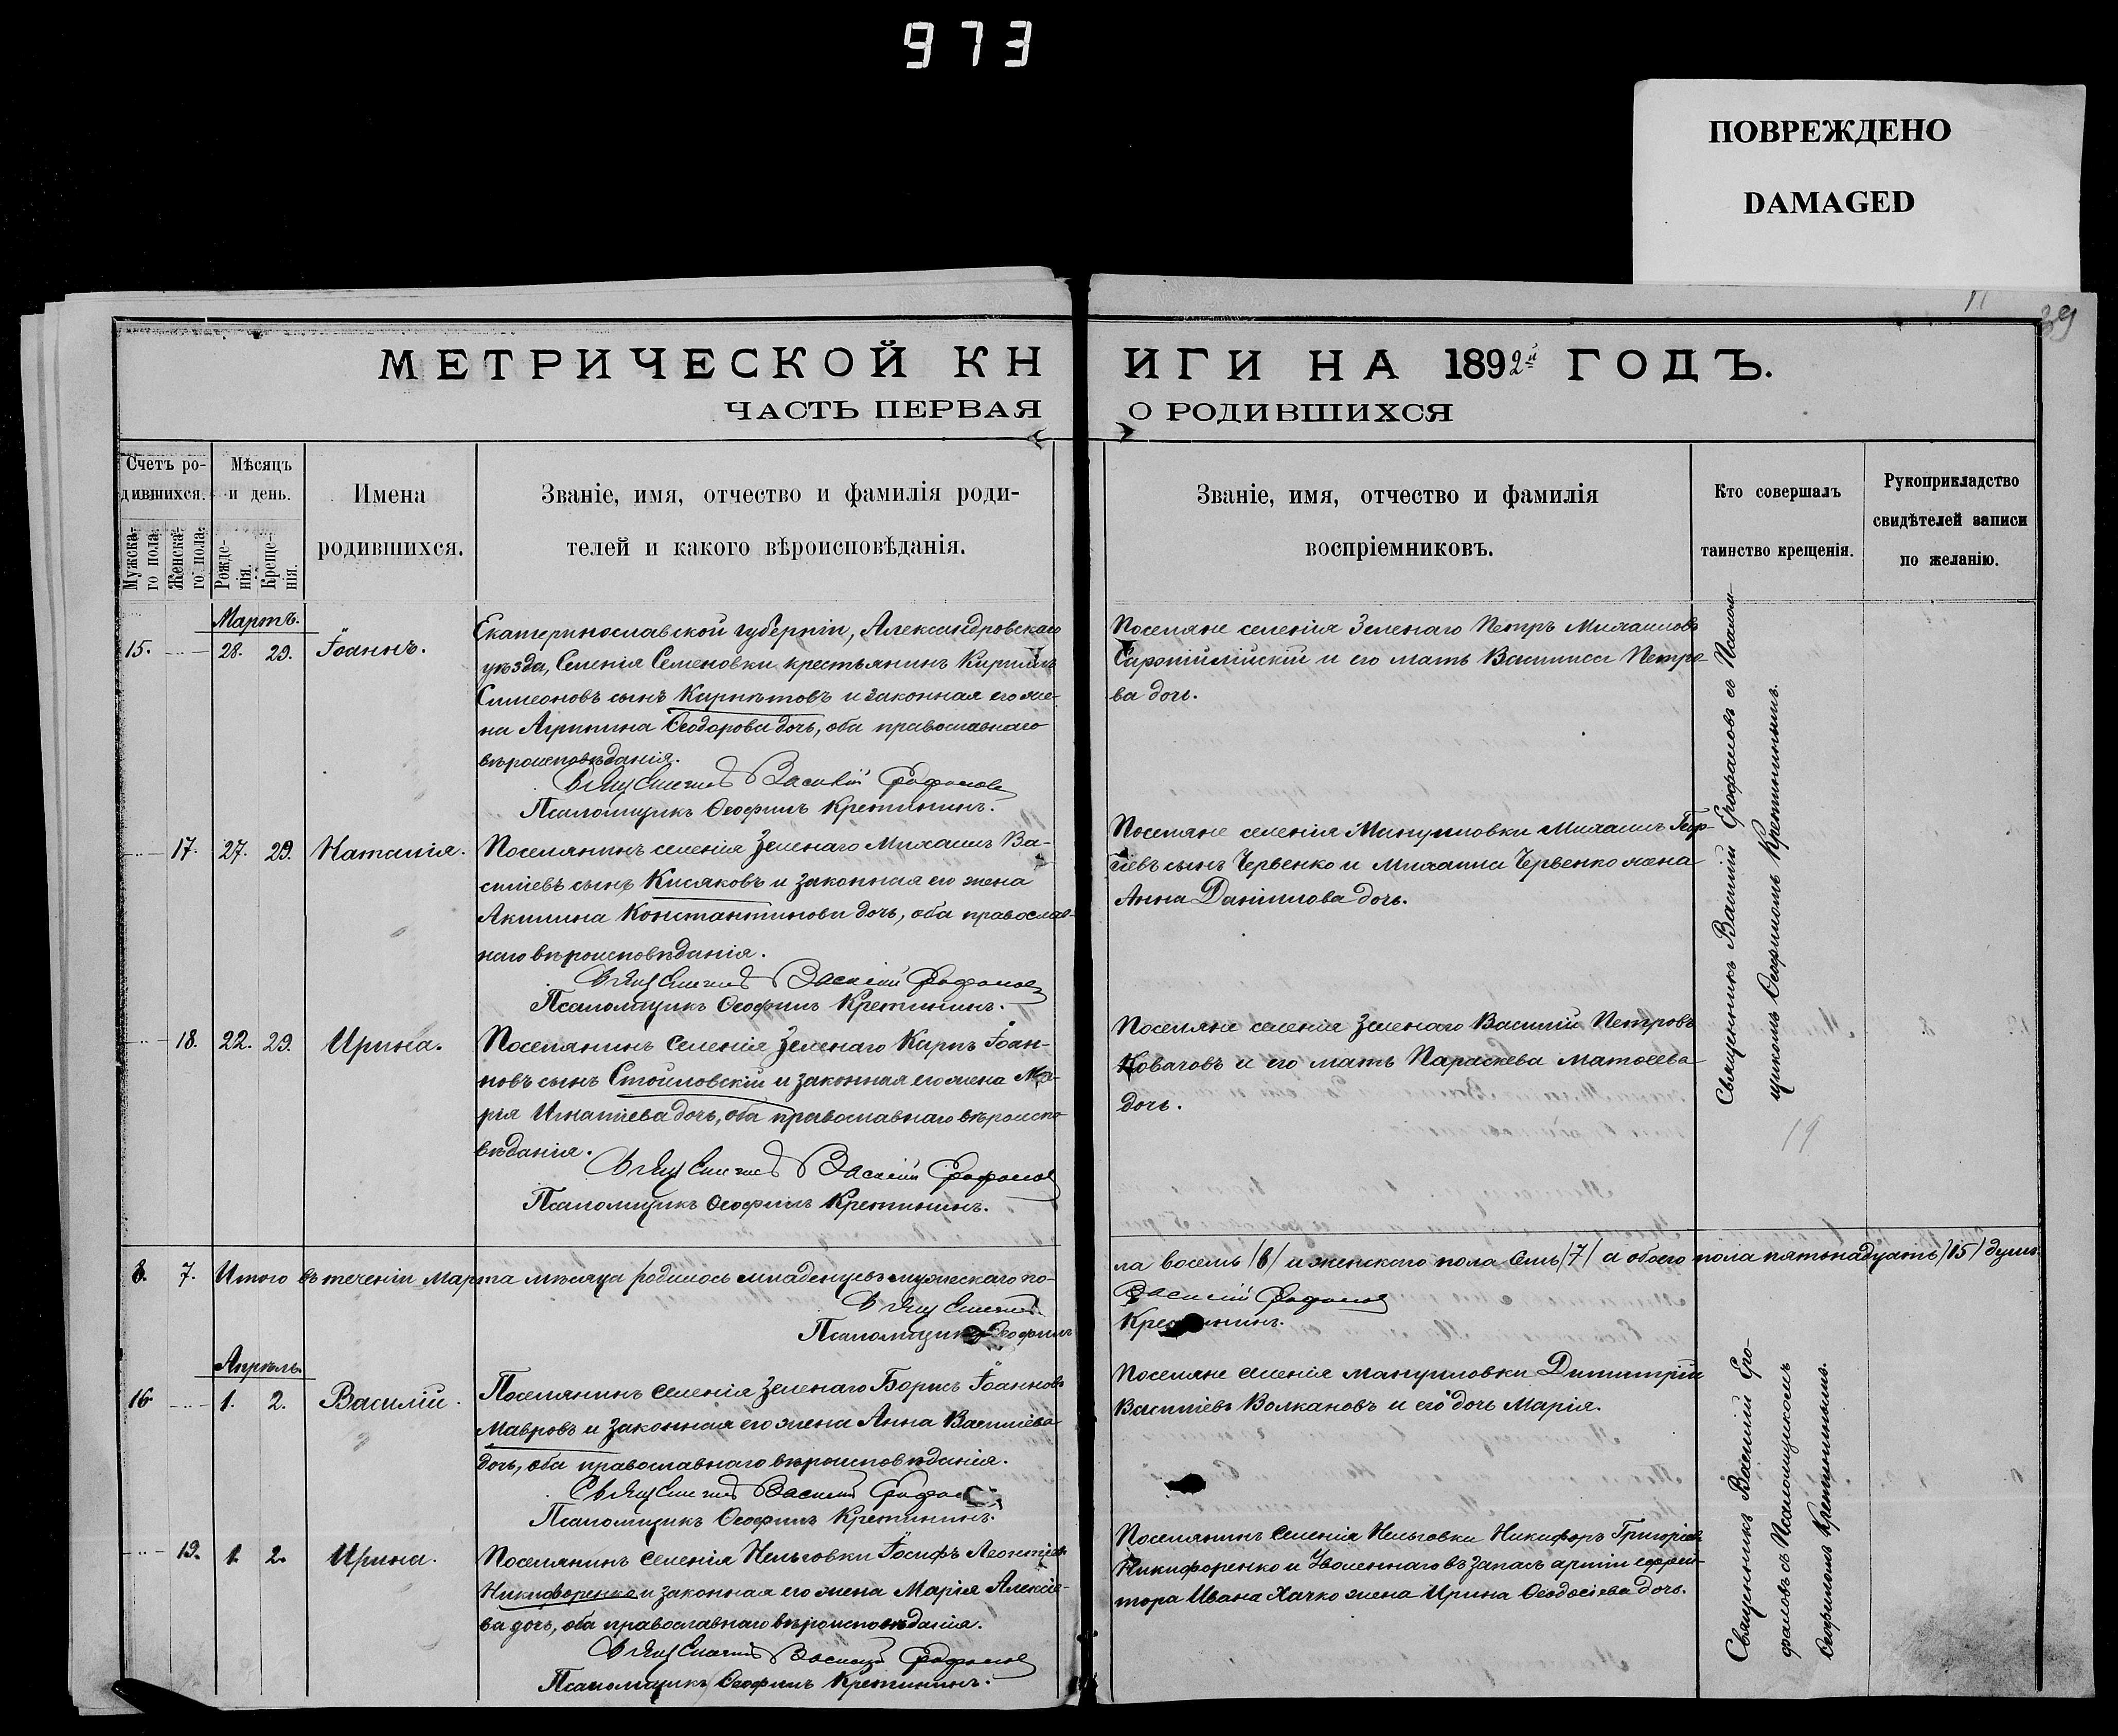 973
ПОВРЕЖДЕНО
DAMAGED
11
39
МЕТРИЧЕСКОЙ КН
ИГИ НА 1892й ГОДЪ.
ЧАСТЬ ПЕРВАЯ
О РОДИВШИХСЯ
Счетъ ро-
дившихся.
Мужска-
го пола.
Женска-
го пола.
Мѣсяцъ
и день.
Рожде-
нія.
Креще-
нія.
Имена
родившихся.
Званіе, имя, отчество и фамилія роди-
телей и какого вѣроисповѣданія.
Званіе, имя, отчество и фамилія
воспріемниковъ.
Кто совершалъ
таинство крещенія.
Рукоприкладство
свидѣтелей записи
по желанію.
Мартъ.
15. 28. 29. Іоаннъ.
Екатеринославской губерніи, Александровскаго
уѣзда, Селенія Семеновки крестьянинъ Кириллъ
Симеоновъ сынъ и законная его же-
на Агрипина Ѳеодорова дочь, оба православнаго
вѣроисповѣданія.
Священникъ Василій Ерофаловъ
Псаломщикъ Ѳеофилъ Кретининъ.
Поселяне селенія Зеленаго Петръ Михаиловъ
и его мать Василиса Петро-
ва дочь.
17. 27. 29. Наталія.
Поселянинъ селенія Зеленаго Михаилъ Ва-
силіевъ сынъ Кисяковъ и законная его жена
Акилина Константинова дочь, оба православ-
наго вѣроисповѣданія.
Священникъ Василій Ерофаловъ
Псаломщикъ Ѳеофилъ Кретининъ.
Поселяне селенія Мануиловки Михаилъ Геор-
гіевъ сынъ Червенко и Михаила Червенко жена
Анна Даніилова дочь.
18. 22. 29. Ирина.
Поселянинъ селенія Зеленаго Карпъ Іоан-
новъ сынъ Стоиловскій и законная его жена Ма-
рія Игнатіева дочь, оба православнаго вѣроиспо-
вѣданія.
Священникъ Василій Ерофаловъ
Псаломщикъ Ѳеофилъ Кретининъ.
Поселяне селенія Зеленаго Василій Петровъ
Ковачовъ и его мать Параскева Матѳеева
дочь.
Священникъ Василій Ерофаловъ съ Псалом-
щикомъ Ѳеофиломъ Кретининымъ.
19
8. 7. Итого въ теченіи Марта мѣсяца родилось младенцевъ мужескаго по-
ла восемь /8/ и женскаго пола семь /7/ а обоего пола пятьнадцать /15/ душъ.
Священникъ
Василій Ерофаловъ
Псаломщикъ Ѳеофилъ
Кретининъ.
Апрѣль.
16. 1. 2. Василій.
Поселянинъ селенія Зеленаго Борисъ Іоанновъ
Мавровъ и законная его жена Анна Василіева
дочь, оба православнаго вѣроисповѣданія.
Священникъ Василій Ерофаловъ
Псаломщикъ Ѳеофилъ Кретининъ.
Поселяне селенія Мануиловки Димитрій
Василіевъ Волкановъ и его дочь Марія.
19. 1. 2. Ирина.
Поселянинъ селенія Нельговки Іосифъ Леонтіевъ
Никифоренко и законная его жена Марія Алексіе-
ва дочь, оба православнаго вѣроисповѣданія.
Священникъ Василій Ерофаловъ
Псаломщикъ Ѳеофилъ Кретининъ.
Поселянинъ селенія Нельговки Никифоръ Григоріевъ
Никифоренко и Уволеннаго въ запасъ арміи ефрей-
тора Ивана Хачко жена Ирина Ѳеодосіева дочь.
Священникъ Василій Еро-
фаловъ съ Псаломщикомъ
Ѳеофиломъ Кретининымъ.